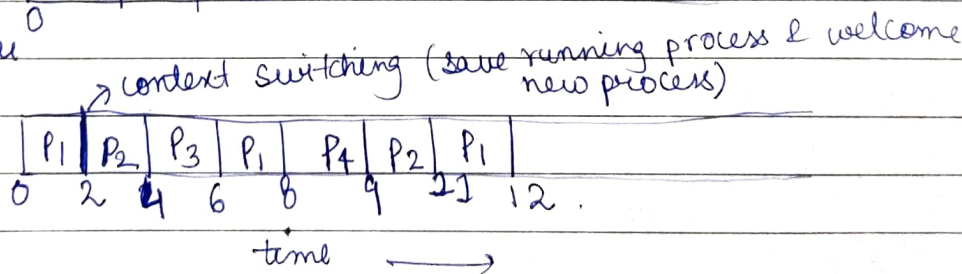 0
context switching (save running process & welcome
new process)
P1 P2 P3 P1 P4 P2 P1
0 2 4 6 8 9 11 12.
time